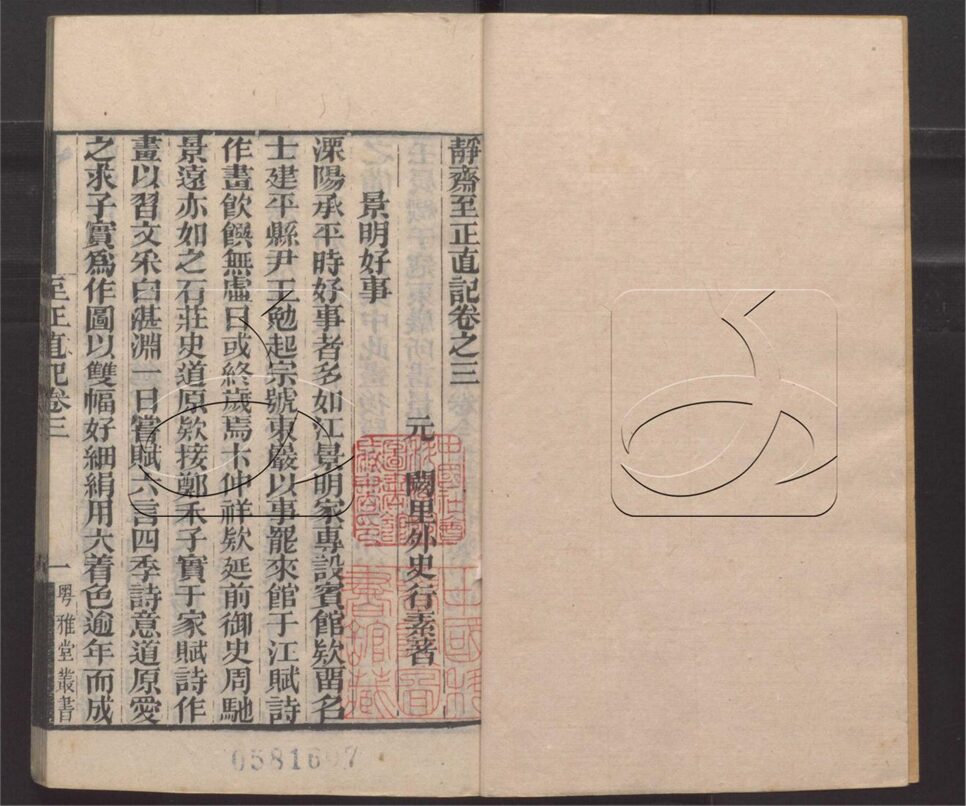 靜齋至正直記卷之三
元 闕里外史行素著
景明好事
溧陽承平時好事者多如江景明家專設賓館欵畱名
士建平縣尹王勉起宗號東巖以事罷來館于江賦詩
作畫飲饌無虛日或終歲焉卞仲祥欵延前御史周馳
景遠亦如之石莊史道原欵接鄭禾子實于家賦詩作
畫以習文釆白湛淵一日嘗賦六言四季詩意道原愛
之求子實爲作圖以雙幅好細絹用大着色逾年而成
至正直記卷三
一
粤雅堂叢書
0581607